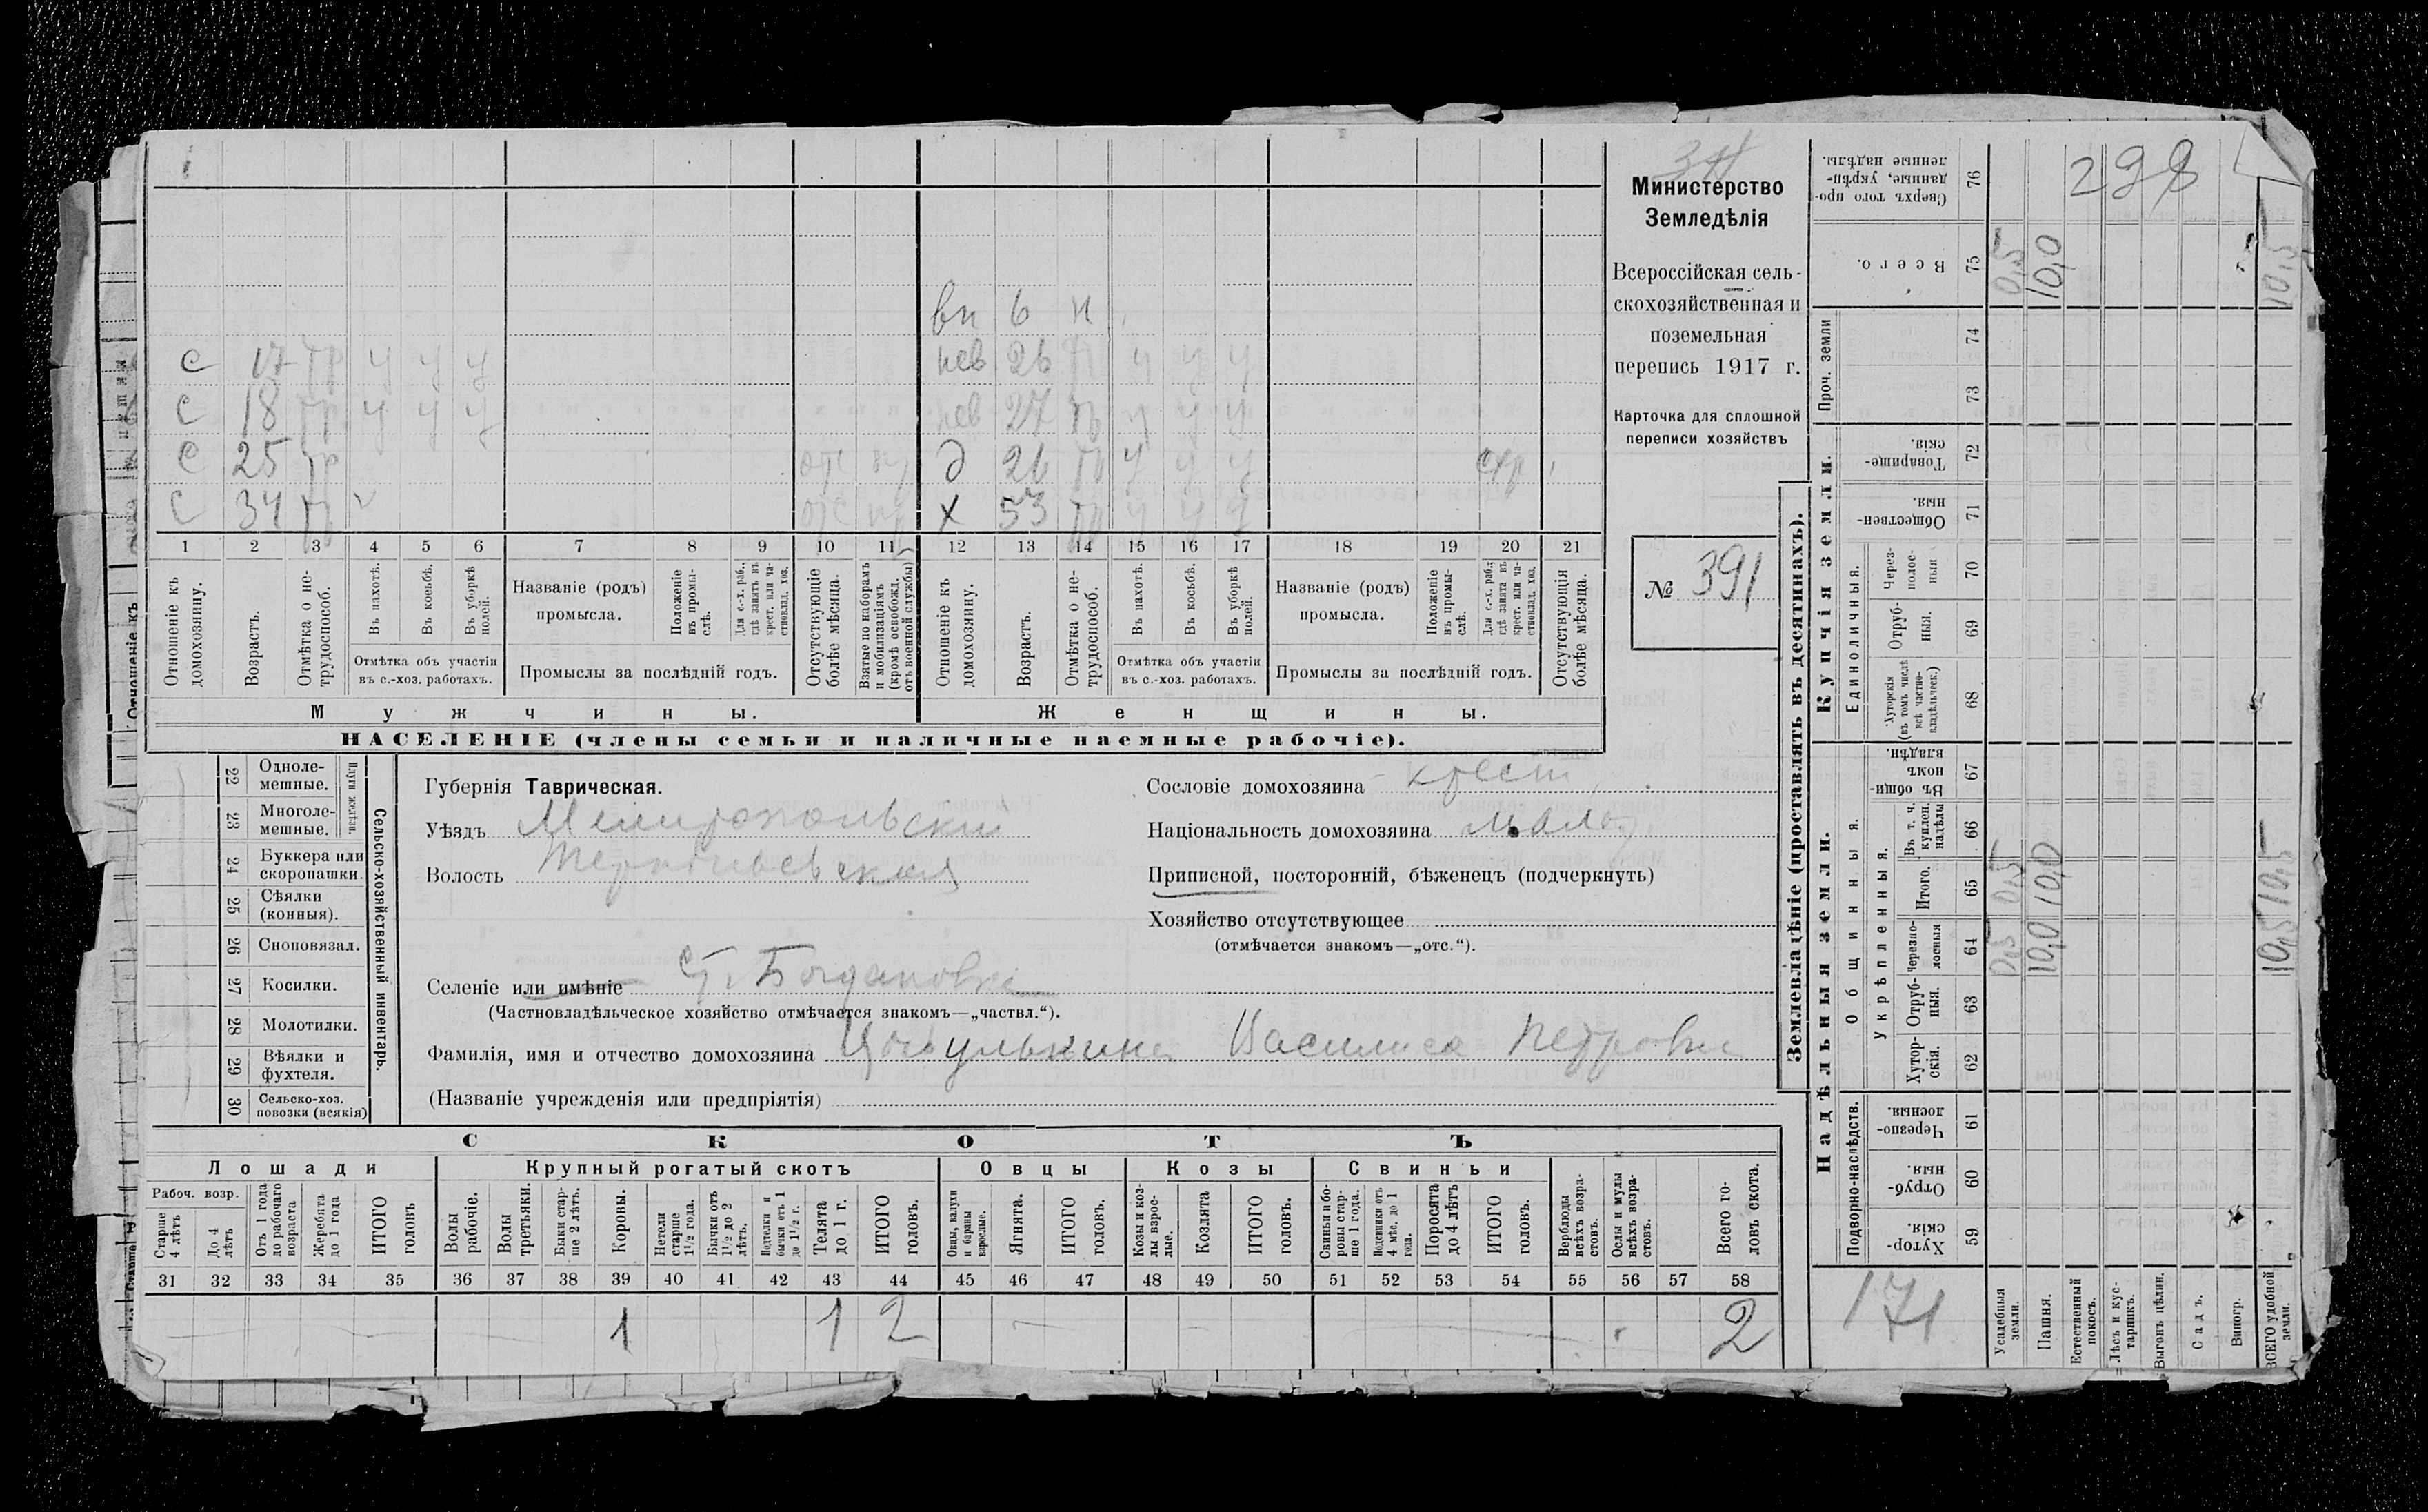 298
Министерство
Земледѣлія
Всероссійская сель-
скохозяйственная и
поземельная
перепись 1917 г.
Карточка для сплошной
переписи хозяйствъ
№ 391
вн 6 н
с 17 тр у у у нев 26 тр у у у
с 18 тр у у у нев 27 тр у у у
с 25 тр отс д 26 тр у у у
с 34 тр отс х 53 тр у у у
1 2 3 4 5 6 7 8 9 10 11 12 13 14 15 16 17 18 19 20 21
Отношеніе къ домохозяину.
Возрастъ.
Отмѣтка о не-трудоспособ.
Въ пахотѣ.
Въ косьбѣ.
Въ уборкѣ полей.
Отмѣтка объ участіи
въ с.-хоз. работахъ.
Названіе (родъ)
промысла.
Положеніе въ промы-слѣ.
Для с.-х. раб., гдѣ занятъ въ крест. или ча-стновлад. хоз.
Промыслы за послѣдній годъ.
Отсутствующіе болѣе мѣсяца.
Взятые по наборамъ и мобилизаціямъ (кромѣ освобожд. отъ военной службы)
Отношеніе къ домохозяину.
Возрастъ.
Отмѣтка о не-трудоспособ.
Въ пахотѣ.
Въ косьбѣ.
Въ уборкѣ полей.
Отмѣтка объ участіи
въ с.-хоз. работахъ.
Названіе (родъ)
промысла.
Положеніе въ промы-слѣ.
Для с.-х. раб., гдѣ занята въ крест. или ча-стновлад. хоз.
Промыслы за послѣдній годъ.
Отсутствующія болѣе мѣсяца.
Мужчины. Женщины.
НАСЕЛЕНІЕ (члены семьи и наличные наемные рабочіе).
22 Одноле-мешные.
23 Многоле-мешные.
Плуги желѣзн.
24 Буккера или скоропашки.
25 Сѣялки (конныя).
26 Сноповязал.
27 Косилки.
28 Молотилки.
29 Вѣялки и фухтеля.
30 Сельско-хоз. повозки (всякія)
Сельско-хозяйственный инвентарь.
Губернія Таврическая.
Уѣздъ Мелитопольскій
Волость
Селеніе или имѣніе с. Богдановка
(Частновладѣльческое хозяйство отмѣчается знакомъ—„частвл.“).
Фамилія, имя и отчество домохозяина Василиса Петровна
(Названіе учрежденія или предпріятія)
Сословіе домохозяина крест.
Національность домохозяина малор.
Приписной, посторонній, бѣженецъ (подчеркнуть)
Хозяйство отсутствующее
(отмѣчается знакомъ—„отс.“).
СКОТЪ
Лошади Крупный рогатый скотъ Овцы Козы Свиньи
Рабоч. возр.
Старше 4 лѣтъ
До 4 лѣтъ
Отъ 1 года до рабочаго возраста
Жеребята до 1 года
ИТОГО головъ
Волы рабочіе.
Волы третьяки.
Быки стар-ше 2 лѣтъ.
Коровы.
Нетели старше 1½ года.
Бычки отъ 1½ до 2 лѣтъ.
Подтелки и бычки отъ 1 до 1½ г.
Телята до 1 г.
ИТОГО головъ.
Овцы, валухи и бараны взрослые.
Ягнята.
ИТОГО головъ.
Козы и коз-лы взрос-лые.
Козлята
ИТОГО головъ.
Свиньи и бо-ровы стар-ше 1 года.
Подсвинки отъ 4 мѣс. до 1 года.
Поросята до 4 лѣтъ
ИТОГО головъ.
Верблюды всѣхъ возра-стовъ.
Ослы и мулы всѣхъ возра-стовъ.
Всего го-ловъ скота.
31 32 33 34 35 36 37 38 39 40 41 42 43 44 45 46 47 48 49 50 51 52 53 54 55 56 57 58
1 1 2 2
Землевладѣніе (проставлять въ десятинахъ).
Надѣльныя земли. Купчія земли. Проч. земли
Подворно-наслѣдств.
Общинныя.
Укрѣпленныя.
Единоличныя.
59 Хутор-скія.
60 Отруб-ныя.
61 Черезпо-лосныя.
62 Хутор-скія.
63 Отруб-ныя.
64 Черезпо-лосныя 0,5 10,0 10,5
65 Итого. 0,5 10,0 10,5
66 Въ т. ч. куплен. надѣлы
67 Въ общи-номъ владѣн.
68 Хуторскія (въ томъ числѣ всѣ частно-владѣльческ.)
69 Отруб-ныя.
70 Через-полос-ныя
71 Обществен-ныя.
72 Товарище-скія.
73
74
75 Всего. 0,5 10,0 10,5
76 Сверхъ того про-данные, укрѣп-ленные надѣлы.
171
Усадебныя земли.
Пашня.
Естественный покосъ.
Лѣсъ и кус-тарникъ.
Выгонъ цѣлин.
Садъ.
Виногр.
ВСЕГО удобной земли.